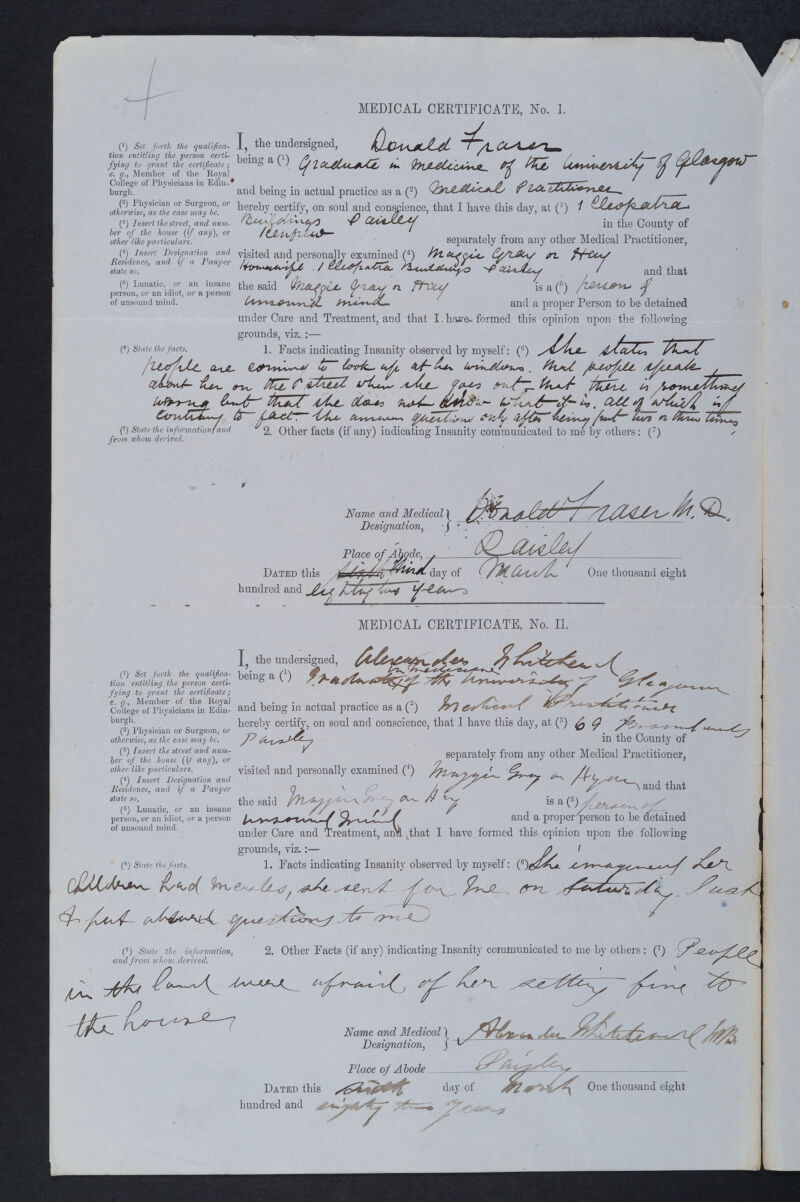 MEDICAL CERTIFICATE, No. I.
(1) Set forth the qualifica-
tion entitling the person certi-
fying to grant the certificate;
e. g., Member of the Royal
College of Physicians in Edin-
burgh.
(2) Physician or Surgeon, or
otherwise, as the case may be.
(3) Insert the street, and num-
ber of the house (if any), or
other like particulars.
(4) Insert Designation and
Residence, and if a Pauper
state so.
(5) Lunatic, or an insane
person, or an idiot, or a person
of unsound mind.
I, the undersigned, Donald Fraser
being a (1) Graduate in medicine of the University of Glasgow
and being in actual practice as a (2) Medical Practitioner
hereby certify, on soul and conscience, that I have this day, at (3) 1 Cleopatra
Buildings Paisley in the County of
Renfrew separately from any other Medical Practitioner,
visited and personally examined (4) Maggie Gray or Hay
Housewife 1 Cleopatra Buildings Paisley and that
the said Maggie Gray or Hay is a (5) person of
unsound mind and a proper Person to be detained
under Care and Treatment, and that I have formed this opinion upon the following
grounds, viz.:—
(6) State the facts.
1. Facts indicating Insanity observed by myself: (6) She states that
people are coming to look up at her windows. that people speak
about her on the street when she goes out, that there is something
wrong but that she does not know what it is. all of which is
contrary to fact. She answers questions only after being put two or three times
(7) State the information, and
from whom derived.
2. Other facts (if any) indicating Insanity communicated to me by others: (7)
Name and Medical Designation, Donald Fraser M.D.
Place of Abode, Paisley
DATED this sixth Third day of March One thousand eight
hundred and eighty two years
MEDICAL CERTIFICATE, No. II.
(1) Set forth the qualifica-
tion entitling the person certi-
fying to grant the certificate;
e. g., Member of the Royal
College of Physicians in Edin-
burgh.
(2) Physician or Surgeon, or
otherwise, as the case may be.
(3) Insert the street and num-
ber of the house (if any), or
other like particulars.
(4) Insert Designation and
Residence, and if a Pauper
state so.
(5) Lunatic, or an insane
person, or an idiot, or a person
of unsound mind.
I, the undersigned, Alexander
being a (1) Graduate in medicine of the University of Glasgow
and being in actual practice as a (2) Medical Practitioner
hereby certify, on soul and conscience, that I have this day, at (3) 69
Paisley in the County of
separately from any other Medical Practitioner,
visited and personally examined (4) Maggie Gray or Hay and that
the said Maggie Gray or Hay is a (5) person of
unsound Mind and a proper person to be detained
under Care and Treatment, and that I have formed this opinion upon the following
grounds, viz.:—
(6) State the facts.
1. Facts indicating Insanity observed by myself: (6) She imagened her
children had measles, she sent for me on Saturday last
& put absurd questions to me
(7) State the information,
and from whom derived.
2. Other Facts (if any) indicating Insanity communicated to me by others: (7) People
in the land were afraid of her setting fire to
the house
Name and Medical Designation, Alexander M.B.
Place of Abode Paisley
DATED this sixth day of March One thousand eight
hundred and eighty two years